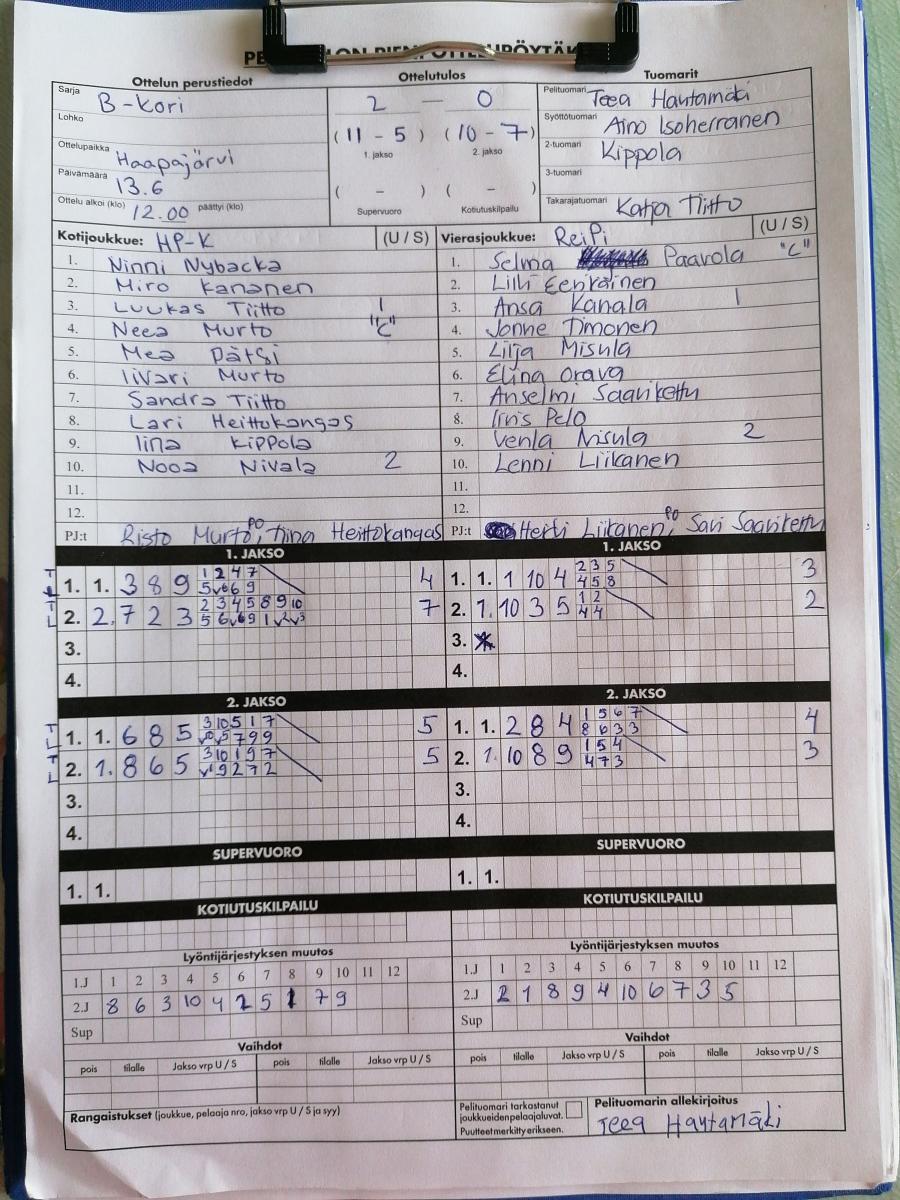 Ottelun perustiedot Ottelutulos Tuomarit
Sarja B-Kori
Lohko
Ottelupaikka Haapajärvi
Päivämäärä 13.6
Ottelu alkoi (klo) 12.00 päättyi (klo)
2 — 0
(11 - 5) (10 - 7)
1. jakso 2. jakso
( - ) ( - )
Supervuoro Kotiutuskilpailu
Pelituomari Teea Hautamäki
Syöttötuomari Aino Isoherranen
2-tuomari Kippola
3-tuomari
Takarajatuomari Katja Tiitto
Kotijoukkue: HP-K (U / S)
1. Ninni Nybacka
2. Miro Kananen
3. Luukas Tiitto 1
4. Neea Murto "C"
5. Mea Pätsi
6. Iivari Murto
7. Sandra Tiitto
8. Lari Heittokangas
9. Iina Kippola
10. Nooa Nivala 2
11.
12.
PJ:t Risto Murto, PO Tiina Heittokangas
Vierasjoukkue: ReiPi (U / S)
1. Selma Paavola "C"
2. Lilli Eenräinen
3. Ansa Kanala 1
4. Jonne Timonen
5. Lilja Misula
6. Elina Orava
7. Anselmi Saarikettu
8. Iiris Pelo
9. Venla Nisula 2
10. Lenni Liikanen
11.
12.
PJ:t Hertti Liikanen, PO Sari Saarikettu
1. JAKSO
1. 1. 3 8 9 1 2 4 7 4
2. 2. 7 2 3 2 3 4 5 8 9 10 7
3.
4.
1. JAKSO
1. 1. 1 10 4 2 3 5 3
4 5 8
2. 1. 10 3 5 1 2 2
4 4
3.
4.
2. JAKSO
1. 1. 6 8 5 3 10 5 1 7 5
2. 1. 8 6 5 3 10 1 9 7 5
3.
4.
2. JAKSO
1. 1. 2 8 4 1 5 6 7 4
8 6 3 3
2. 1. 10 8 9 1 5 4 3
4 7 3
3.
4.
SUPERVUORO
1. 1.
SUPERVUORO
1. 1.
KOTIUTUSKILPAILU
KOTIUTUSKILPAILU
Lyöntijärjestyksen muutos
1.J 1 2 3 4 5 6 7 8 9 10 11 12
2.J 8 6 3 10 4 2 5 1 7 9
Sup
Lyöntijärjestyksen muutos
1.J 1 2 3 4 5 6 7 8 9 10 11 12
2.J 2 1 8 9 4 10 6 7 3 5
Sup
Vaihdot
pois tilalle Jakso vrp U / S pois tilalle Jakso vrp U / S
Vaihdot
pois tilalle Jakso vrp U / S pois tilalle Jakso vrp U / S
Rangaistukset (joukkue, pelaaja nro, jakso vrp U / S ja syy)
Pelituomari tarkastanut
joukkueiden pelaajaluvat.
Puutteet merkitty erikseen.
Pelituomarin allekirjoitus
Teea Hautamäki